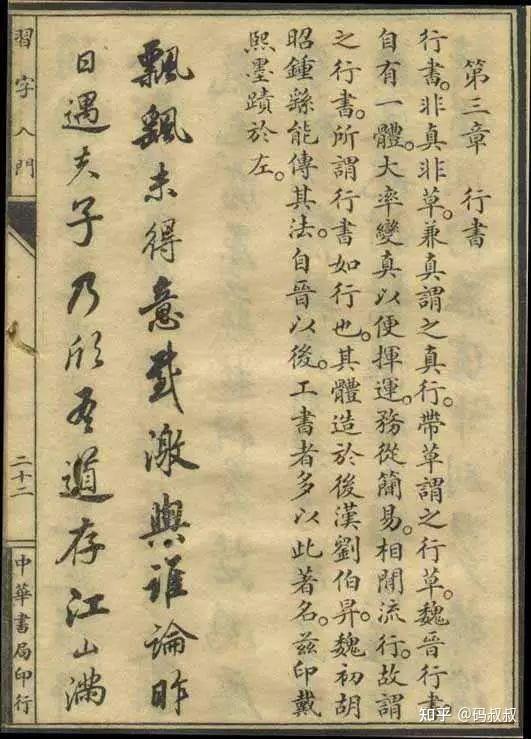 第三章 行書
行書。非真非草。兼真謂之真行。帶草謂之行草。魏晉行書
自有一體。大率變真以便揮運。務從簡易。相閒流行。故謂
之行書。所謂行書如行也。其體造於後漢劉伯昇。魏初胡
昭鍾繇能傳其法。自晉以後。工書者多以此著名。茲印戴
熙墨蹟於左。
飄飄未得意感激與誰論昨
日遇夫子乃欣吾道存江山滿
習字入門
二十二
中華書局印行
知乎 @码叔叔